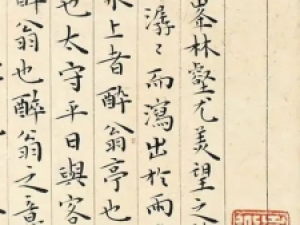 峯林壑尤美望之
潺潺而瀉出於兩
上者醉翁亭也
也太守平日與客
醉翁也醉翁之意